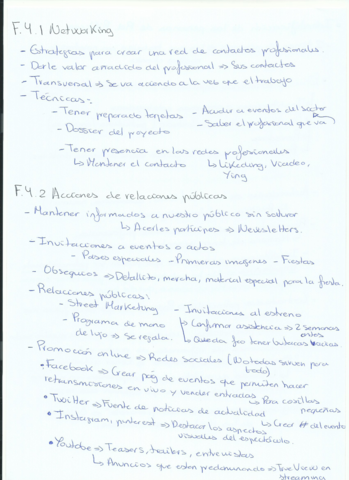 F.4.1 Networking
- Estrategias para crear una red de contactos profesionales.
- Darle valor añadido del profesional ⇒ Sus contactos
- Transversal ⇒ Se va haciendo a la vez que el trabajo
- Técnicas:
- Tener preparado tarjetas - Acudir a eventos del sector
- Dossier del proyecto - Saber el profesional que va
- Tener presencia en las redes profesionales
↳ Mantener el contacto ↳ Linkedang, Viadeo,
Ying
F.4.2 Acciones de relaciones públicas
- Mantener informados a nuestro público sin saturar
↳ Acerles partícipes ⇒ Newsletters.
- Invitaciones a eventos o actos
- Pases especiales - Primeras imagenes - Fiestas
- Obsequios ⇒ Detallito, merche, material especial para la fiesta.
- Relaciones públicas:
- Street Marketing - Invitaciones al estreno
- Programa de mano ↳ Confirmar asistencia ⇒ 2 semanas antes
de lujo ⇒ se regala. ↳ Queda feo tener butacas vacías.
- Promoción online ⇒ Redes sociales (No todas sirven para todo)
• Facebook ⇒ Crear pág de eventos que permiten hacer
retransmisiones en vivo y vender entradas ↳ Para cosillas pequeñas
• Twitter ⇒ Fuente de noticias de actualidad
↳ Crear # del evento
• Instagram, pinterest ⇒ Destacar los aspectos
visuales del espectáculo.
• Youtube ⇒ Teasers, trailers, entrevistas
↳ Anuncios que estan predominando ⇒ en
streaming